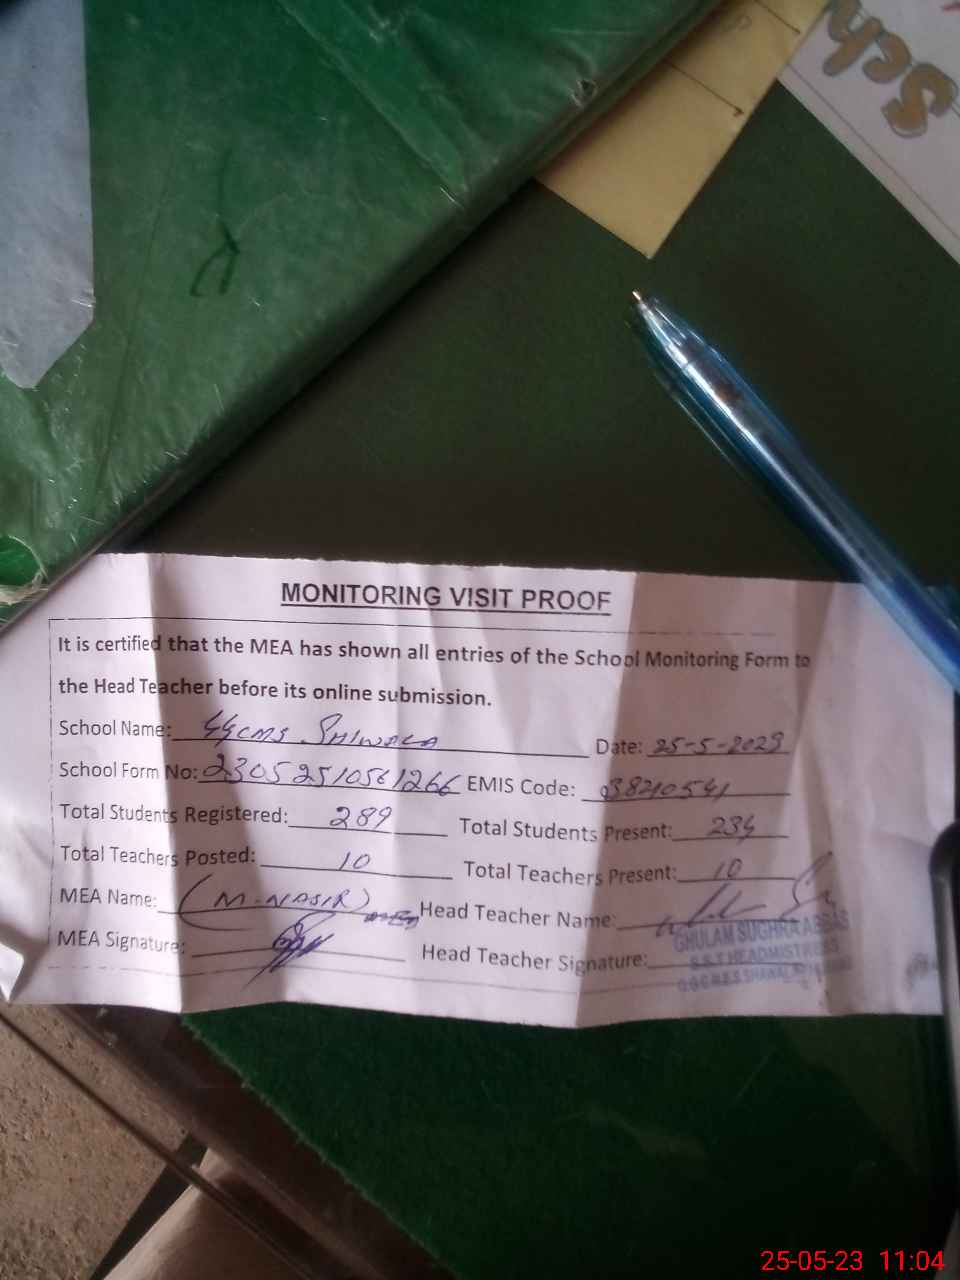 Sch
MONITORING VISIT PROOF
It is certified that the MEA has shown all entries of the School Monitoring Form to
the Head Teacher before its online submission.
School Name: GGCMS SHIWALA Date: 25-5-2023
School Form No: 23052510561266 EMIS Code: 38210541
Total Students Registered: 289 Total Students Present: 234
Total Teachers Posted: 10 Total Teachers Present: 10
MEA Name: (M. NASIR) Head Teacher Name:
MEA Signature: Head Teacher Signature:
GHULAM SUGHRA ABBAS
S.S.T HEADMISTRESS
25-05-23 11:04